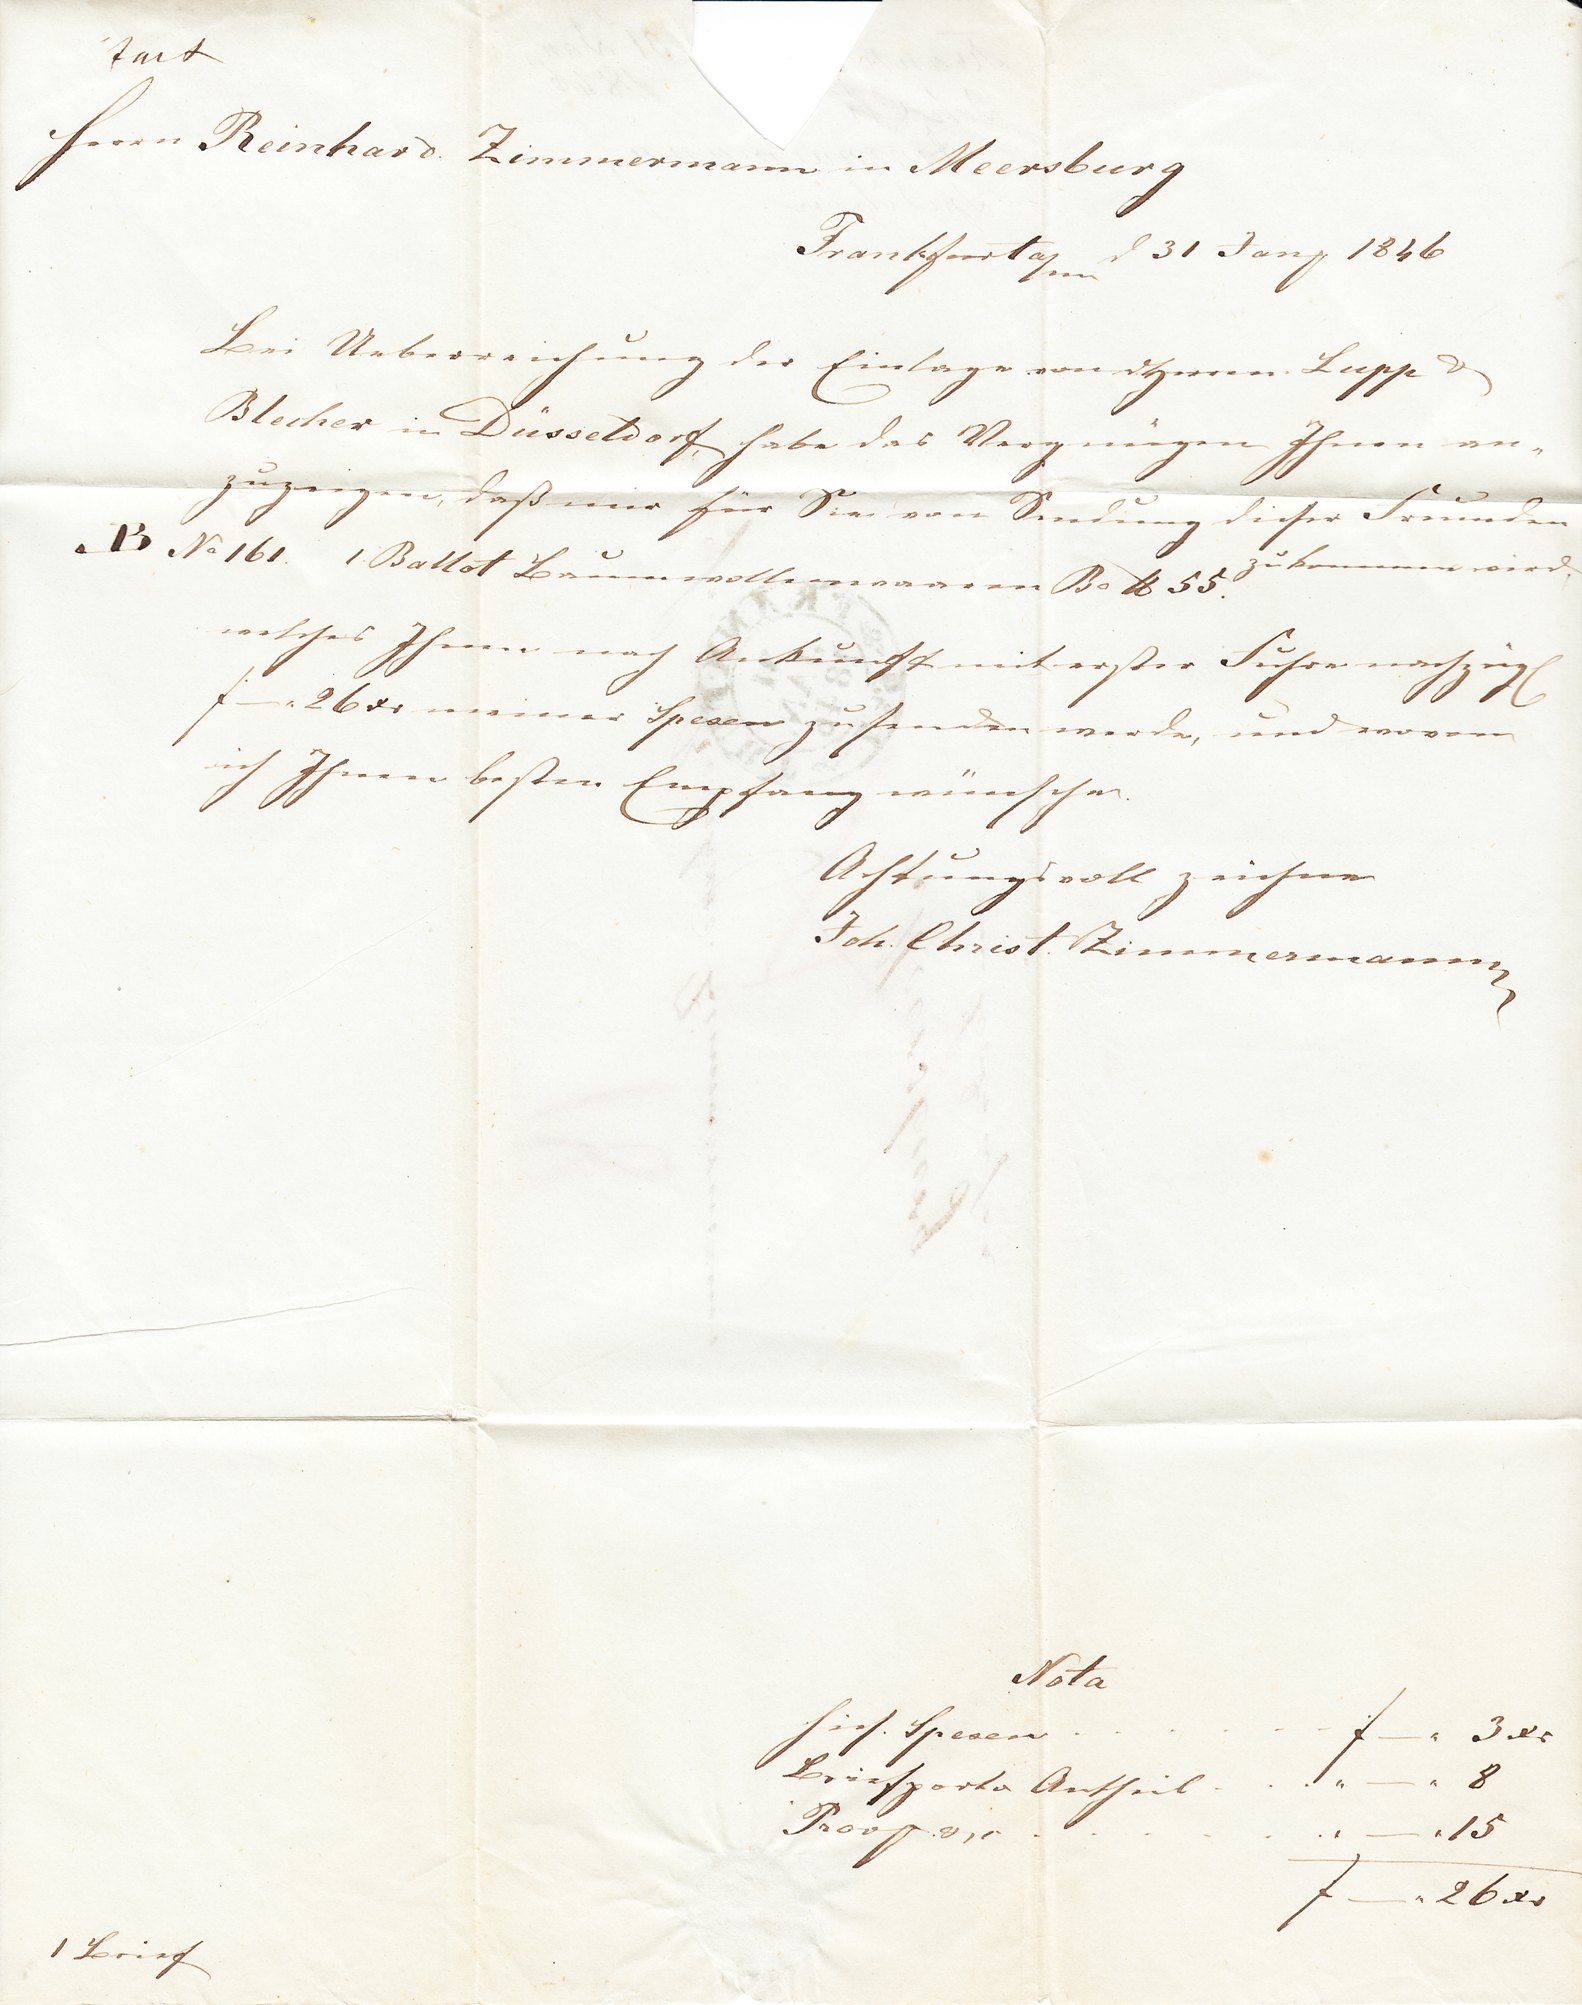 Herrn Reinhard Zimmermann in Meersburg
Frankfurt a/m d 31 Jany 1846
Bei Ueberreichung der Einlage von Herren Lupp &
Blecher in Düsseldorf, habe das Vergnügen Ihnen an-
zuzeigen, daß mir für Sie von Sendung dieser Freunden
B No 161. 1 Ballot Baumwollenwaaren Bo ℔ 55. zukommen wird,
welches Ihnen nach Ankunft mit erster Fuhre nachzügl
f — " 26 xr meiner Spesen zusenden werde, und wovon
ich Ihnen besten Empfang wünsche.
Achtungsvoll zeichne
Joh. Christ. Zimmermann
Nota
hies. Spesen f — " 3 xr
Briefporto Antheil " — " 8
Prov " — " 15
f — " 26 xr
1 Brief